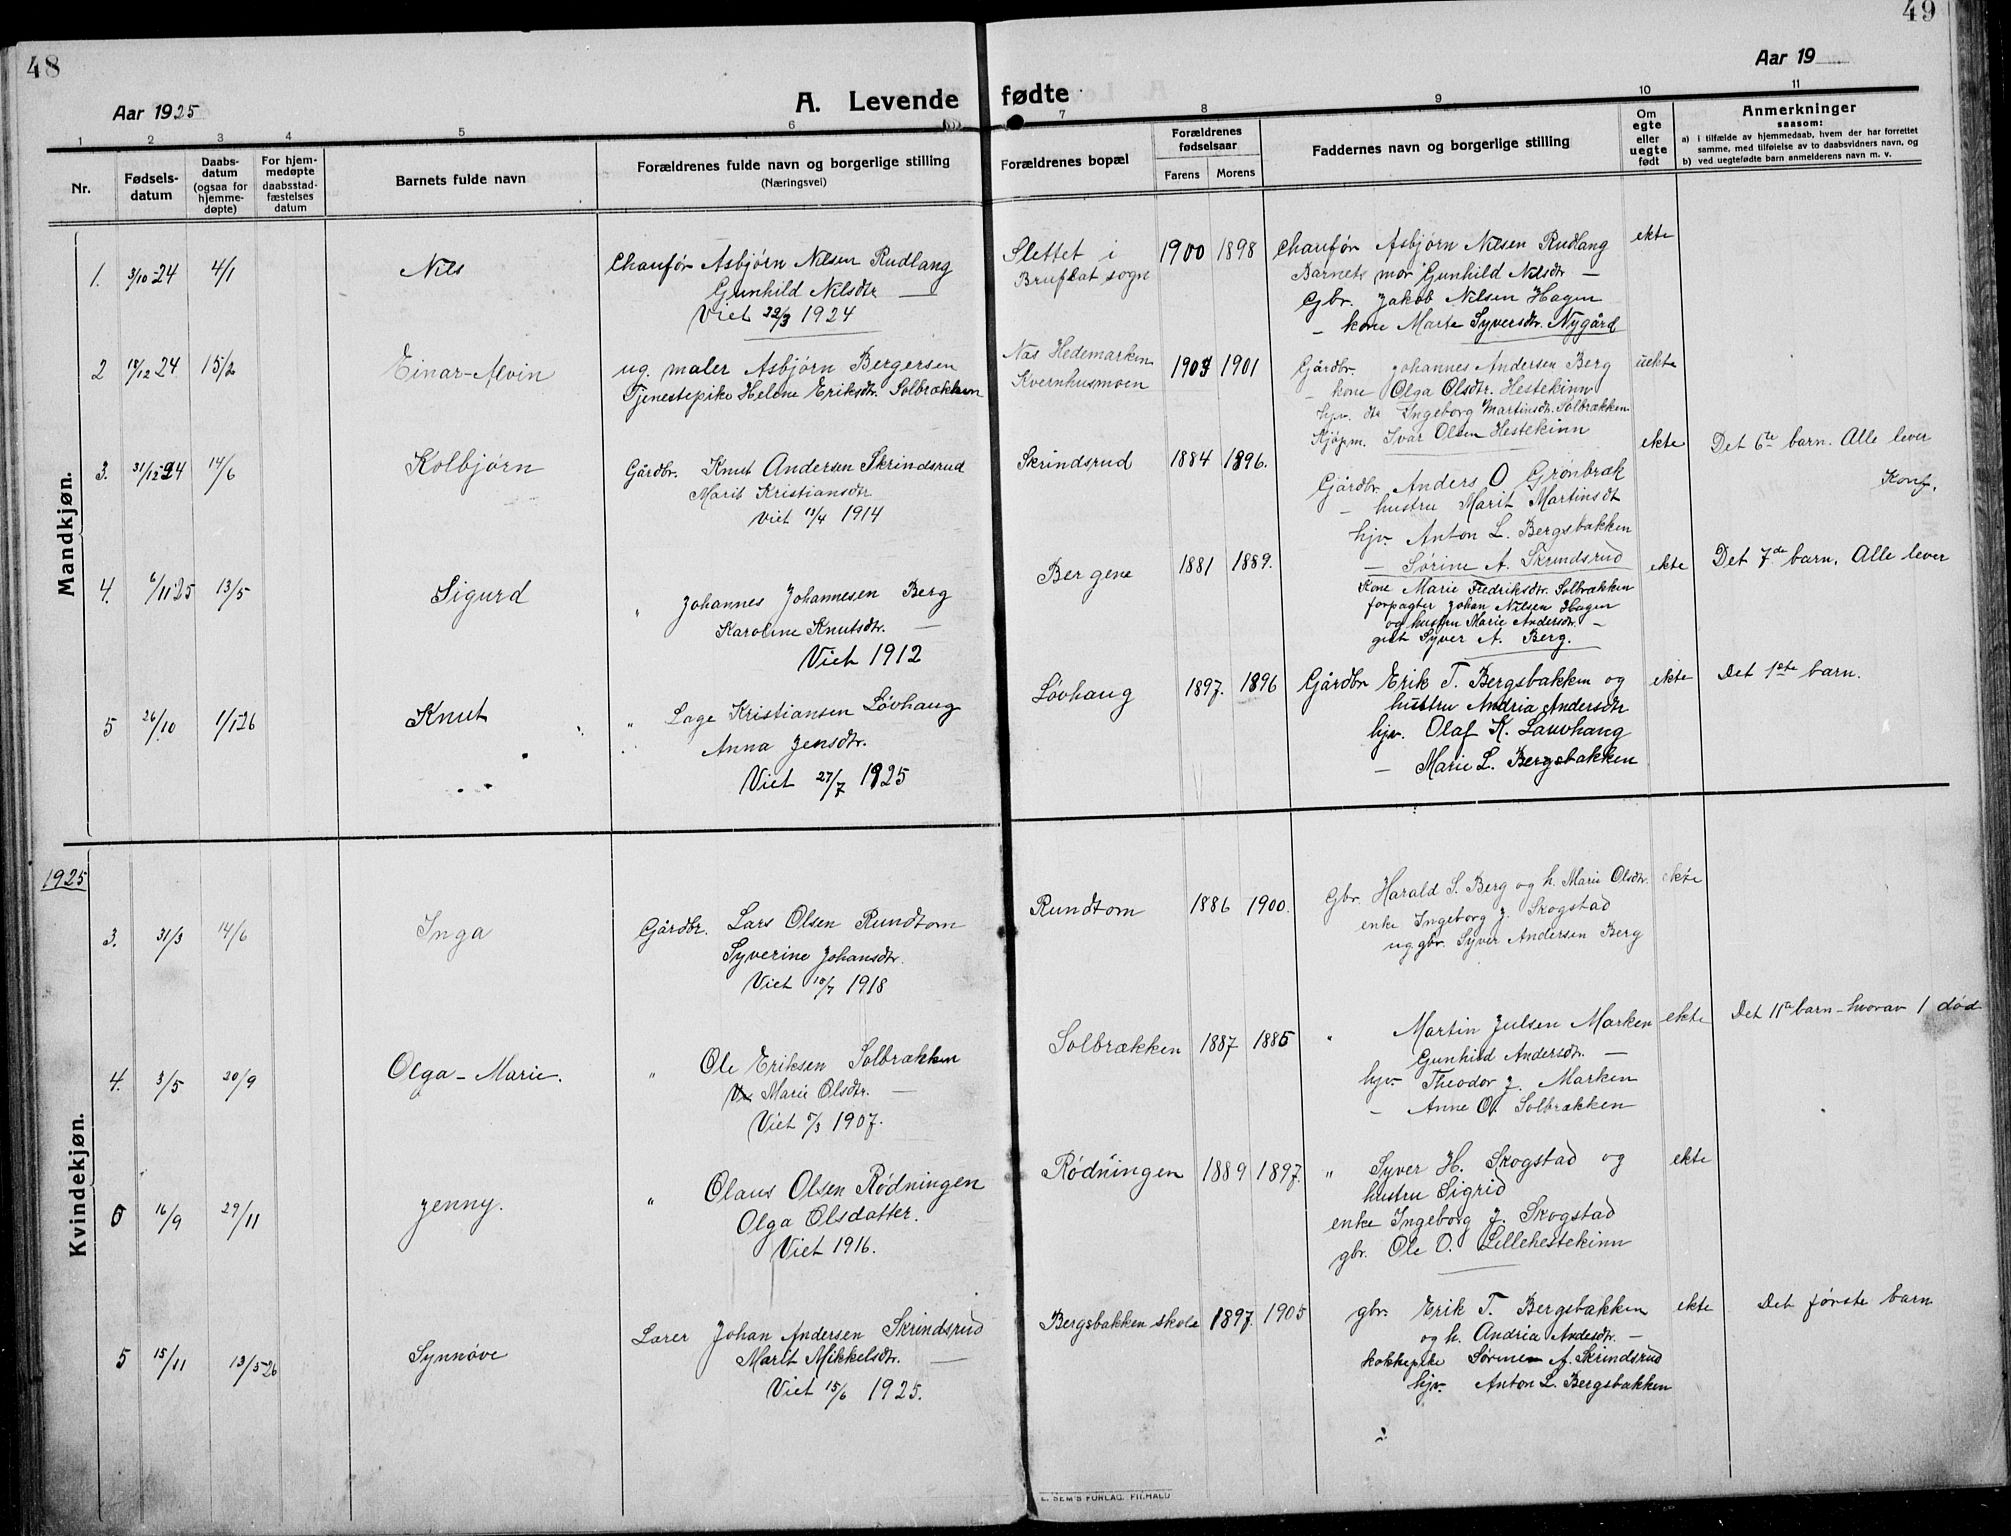 48
49
Aar 1925
Aar 19
A. Levende fødte
1 2 3 4 5 6 7 8 9 10 11
Nr.
Fødsels-
datum
Daabs-
datum
(ogsaa for
hjemme-
døpte)
For hjem-
medøpte
daabsstad-
fæstelses
datum
Barnets fulde navn
Forældrenes fulde navn og borgerlige stilling
(Næringsvei)
Forældrenes bopæl
Forældrenes
fødselsaar
Farens Morens
Faddernes navn og borgerlige stilling
Om
egte
eller
uegte
født
Anmerkninger
saasom:
a) i tilfælde av hjemmedaab, hvem der har forrettet
samme, med tilføielse av to daabsvidners navn, og
b) ved uegtefødte barn anmelderens navn m. v.
Mandkjøn.
1. 3/10-24 4/1 Nils
Chaufør Asbjørn Nilsen Rudlang
Gunhild Nilsdtr —
Viet 22/3 1924
Slettet i
Bruflat sogn
1900 1898
Chaufør Asbjørn Nilsen Rudlang
Barnets mor Gunhild Nilsdtr —
Gbr. Jakob Nilsen Hagen
— kone Marte Syversdtr. Nygård
ekte
2 /12 24 15/2 Einar-Alvin
ug. maler Asbjørn Bergersen
Tjenestepike Helene Eriksdtr. Solbrækken
Nas Hedemarken
Kvernhusmoen
1903 1901
Gårdbr. Johannes Andersen Berg
— kone Olga Olsdtr. Hestekinn
hjv. dtr Ingeborg Martinsdtr. Solbrækken
Kjøpm. Ivar Olsen Hestekinn
uekte
3. 31/12-24 14/6 Kolbjørn
Gårdbr. Knut Andersen Skrindsrud
Marit Kristiansdtr
Viet 13/4 1914
Skrindsrud
1884 1896.
Gårdbr Anders O Grønbræk
— hustru Marit Martinsdt
hjv. Anton L. Bergsbakken
— Sørine A. Skrindsrud
ekte
Det 6te barn. Alle lever
Konf.
4. 6/11 25 13/5 Sigurd
" Johannes Johannesen Berg
Karoline Knutsdtr. —
Viet 1912
Bergene
1881 1889.
Kone Marie Fredriksdtr. Solbrækken
forpagter Johan Nilsen Hagen
og hustru Marie Andersdtr. —
gut Syver A. Berg.
ekte
Det 7de barn. Alle lever
5 26/10 1/1 26 Knut
" Lage Kristiansen Løvhaug
Anna Jensdtr.
Viet 27/7 1925
Løvhaug
1897. 1896
Gårdbr Erik T. Bergsbakken og
hustru Andria Andersdtr
hjv. Olaf K. Lauvhaug
— Marie L. Bergsbakken
ekte
Det 1ste barn.
1925
Kvindekjøn.
3. 31/3 14/6 Inga
Gårdbr. Lars Olsen Rundtom
Syverine Johansdtr.
Viet 10/7 1918
Rundtom
1886 1900.
Gbr. Harald S. Berg og h. Marie Olsdtr.
enke Ingeborg J. Skogstad
ug. gbr. Syver Andersen Berg
ekte
4. 3/5 20/9 Olga-Marie.
" Ole Eriksen Solbrækken
Marie Olsdtr. —
Viet /3 1907.
Solbrækken
1887 1885
" Martin Julsen Marken
Gunhild Andersdtr. —
hjv. Theodor J. Marken
— Anne O. Solbrækken
ekte
Det 11te barn - hvorav 1 død
16/9 29/11 Jenny.
" Olaus Olsen Rødningen
Olga Olsdatter.
Viet 1916.
Rødningen
1889 1897.
" Syver H. Skogstad og
hustru Sigrid
enke Ingeborg J. Skogstad
gbr. Ole O. Lillehestekinn
ekte
5 15/11 13/5-26 Synnøve
Lærer Johan Andersen Skrindsrud
Marit Mikkelsdtr. —
Viet 15/6 1925.
Bergsbakken skole
1897. 1905
gbr. Erik T. Bergsbakken
og h. Andria Andesdtr. —
kokkepike Sørine A. Skrindsrud
hjv. Anton L. Bergsbakken
ekte
Det første barn
E. SEM'S FORLAG, FR.HALD